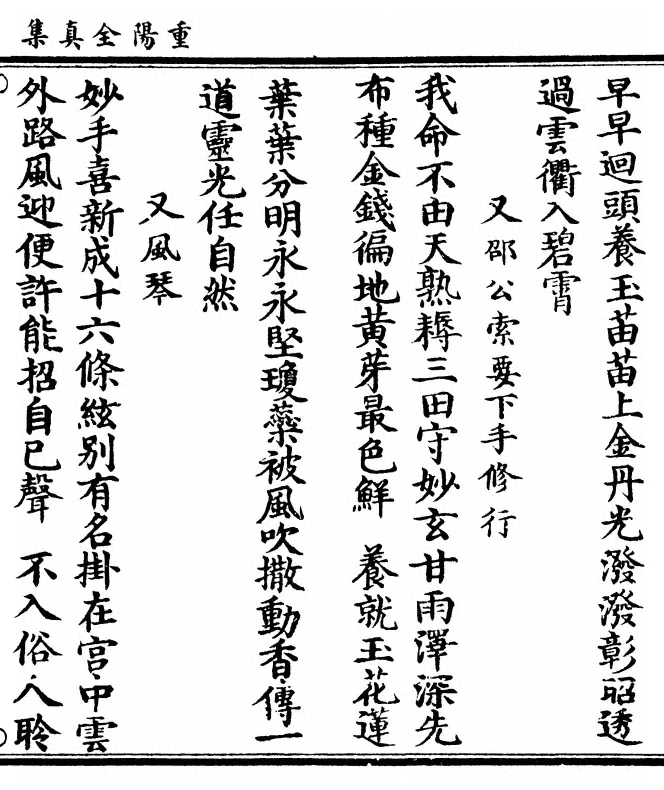 重陽全真集
早早迴頭養玉苗苗上金丹光潑潑彰昭透
過雲衢入碧霄
又邵公索要下手修行
我命不由天熟耨三田守妙玄甘雨澤深先
布種金錢徧地黃芽最色鮮　養就玉花蓮
葉葉分明永永堅瓊蘂被風吹撒動香傳一
道靈光任自然
又風琴
妙手喜新成十六條絃别有名掛在宮中雲
外路風迎便許能招自己聲　不入俗人聆